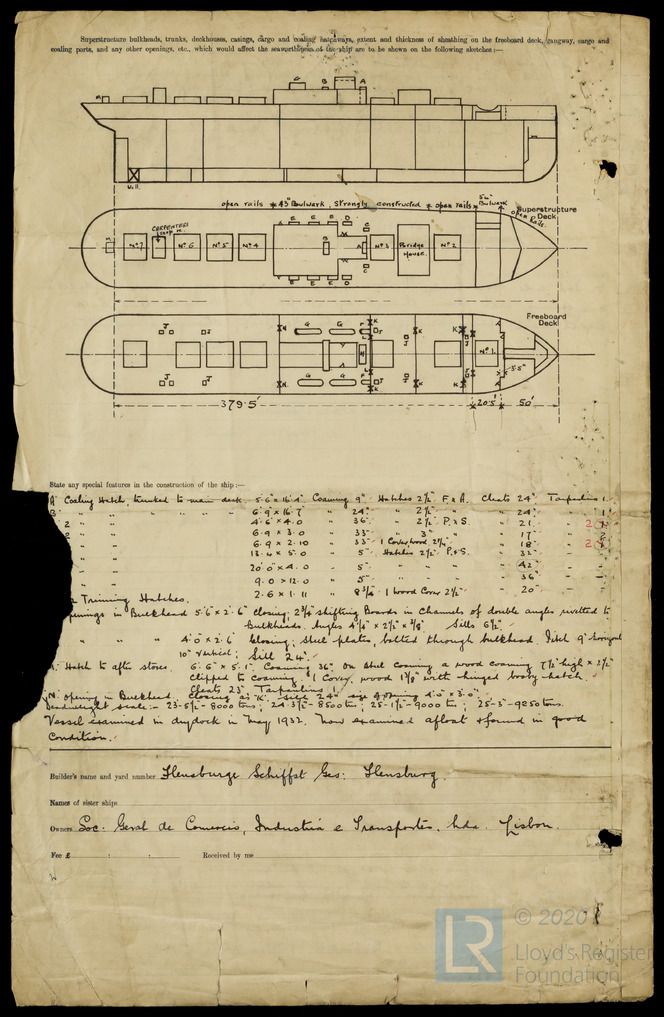 Superstructure bulkheads, trunks, deckhouses, casings, cargo and coaling hatchways, extent and thickness of sheathing on the freeboard deck, gangway, cargo and
coaling ports, and any other openings, etc., which would affect the seaworthiness of the ship are to be shown on the following sketches:—
M C B A
Well.
open rails * 43" Bulwark, Strongly constructed * open rails * Bulwark open Rails.
Superstructure Deck.
CARPENTERS SHOP
M No 7 No 6 No 5 No 4 B A No 3 Bridge House. No 2
E E E D C
E E E D C
Freeboard Deck
J J N G G F K J K K
No 1.
J J N G G F K J K K
5.5'
379.5' 20.5' 50'
State any special features in the construction of the ship:—
A Coaling Hatch, trunked to main deck. 5.6" x 16.4" Coaming 9" Hatches 2½" F. & A. Cleats 24" Tarpaulins 1.
B " " " " " 6.9" x 16.7" " 24" " 2½" " 24" " 1
2 " " 4.6" x 4.0 " 36" " 2½" P. & S. " 21 " 2
2 " " 6.9 x 3.0 " 33" " 3" " 17 "
" " 6.9 x 2.10 " 33" 1 Cover wood 2½" " 18 " 2
" " 13.4 x 5.0 " 5" Hatches 2½" P. & S. " 32 "
" " 20.0 x 4.0 " 5" " " " 42 "
" " 9.0 x 12.0 " 5" " " " 36 "
" " 2.6 x 1.11 " 8¾" 1 wood Cover 2½" " 20 "
Trimming Hatches.
openings in Bulkhead 5.6" x 2.6" Closing; 2¾" shifting Boards in Channels of double angles rivetted to
Bulkheads. Angles 4¼" x 2½" x ⅜" Sills 6½".
" " " 4.0 x 2.6 Closing; steel plates, bolted through bulkhead. Pitch 9" horizontal
10" vertical; Sill 24"
M. Hatch to after stores. 6.6" x 5.1" Coaming 36". On steel coaming a wood coaming 7½" high x 2½"
clipped to coaming. 1 Cover, wood 1⅜" with hinged booby-hatch.
Cleats 23" Tarpaulins 1.
N. opening in Bulkhead. Closing as "K" Sills 24" size of opening 4'.0" x 3'.0".
Deadweight scale:- 23-5½"- 8000 tons; 24-3½"- 8500 tons; 25-1½"- 9000 tons; 25-3"- 9250 tons.
Vessel examined in drydock in May 1932. Now examined afloat & found in good
condition.
Builder's name and yard number Flensburge Schiffsb Ges: Flensburg.
Names of sister ships
Owners Soc. Geral de Comercio, Industria e Transportes. Lda. Lisbon.
Fee £ : : Received by me
LR
© 2020
Lloyd's Register
Foundation